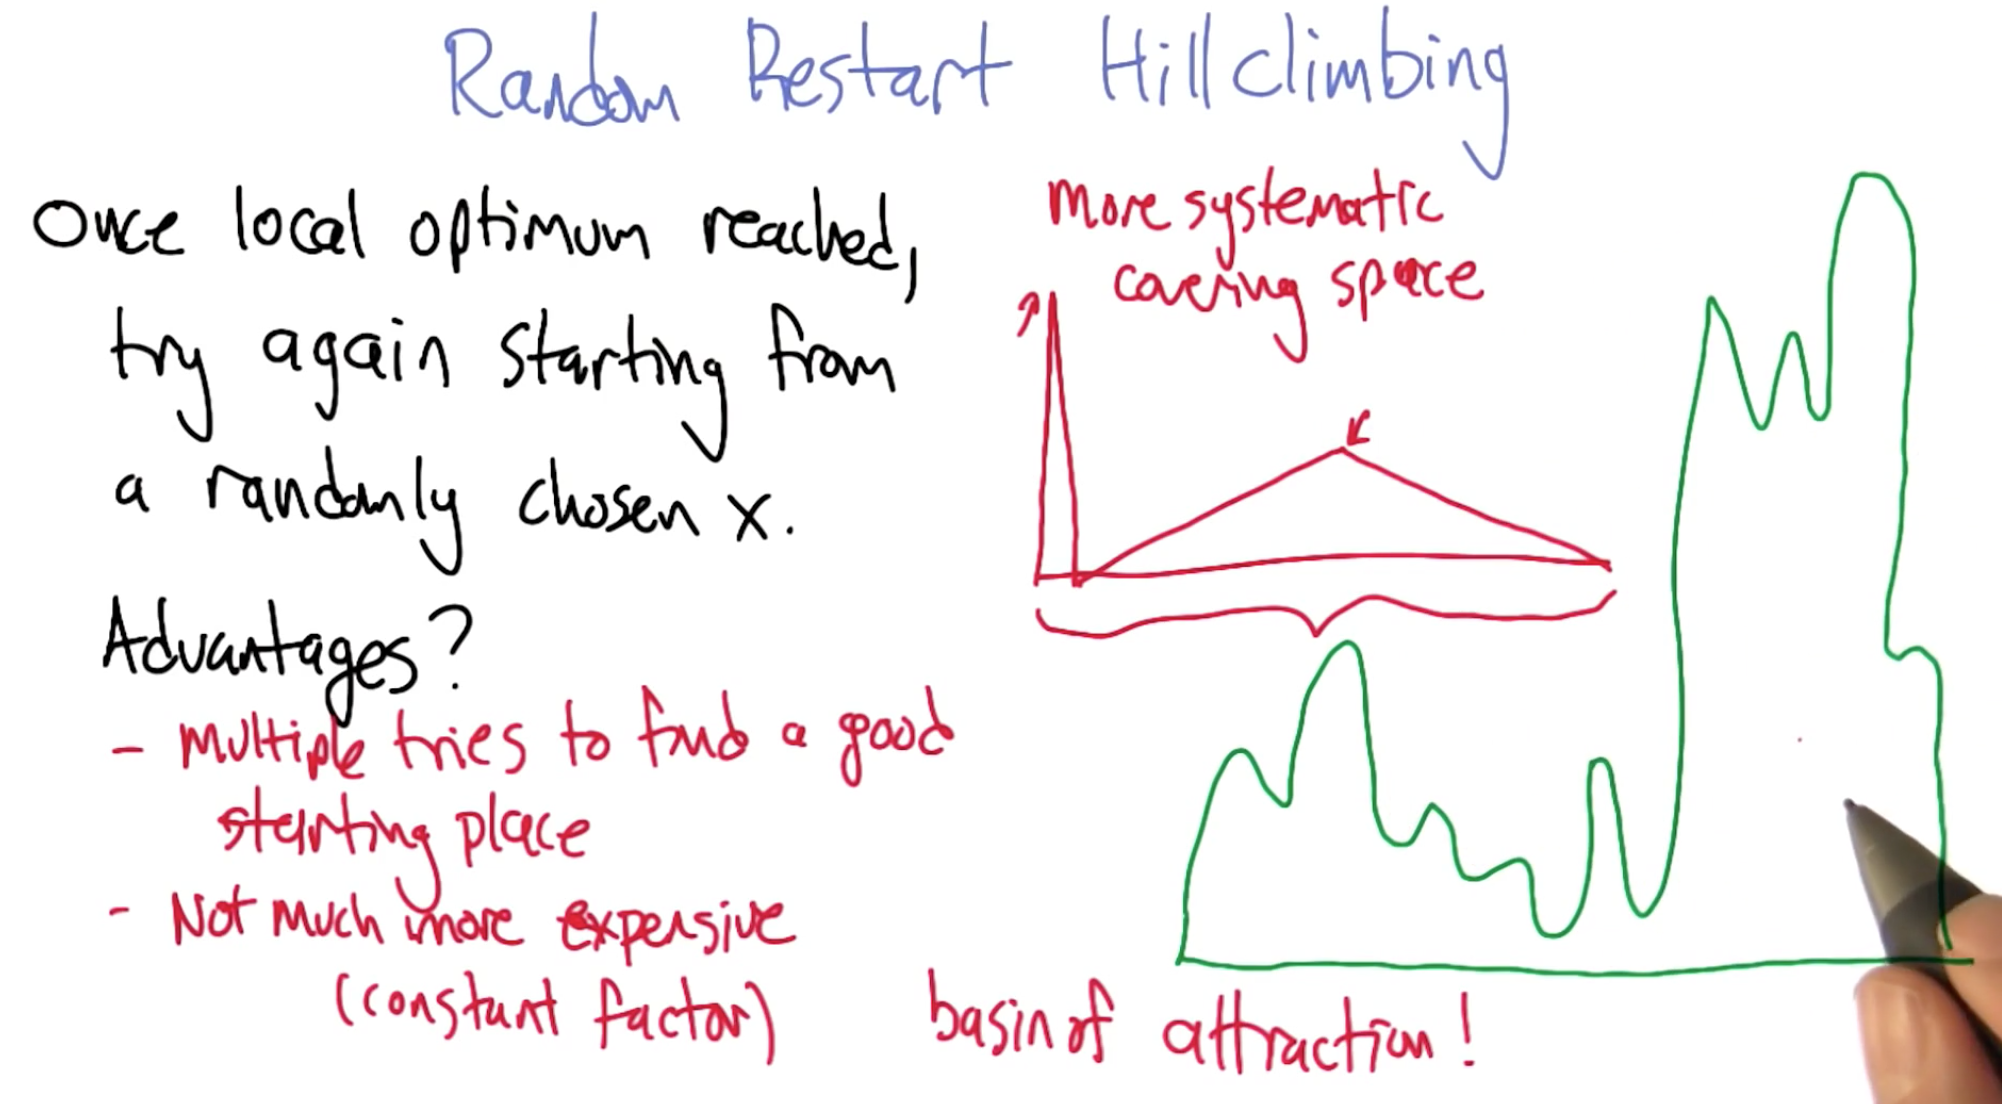 Random Restart Hillclimbing
Once local optimum reached,
try again starting from
a randomly chosen x.
Advantages?
- multiple tries to find a good
starting place
- Not much more expensive
(constant factor)
more systematic
covering space
basin of attraction!